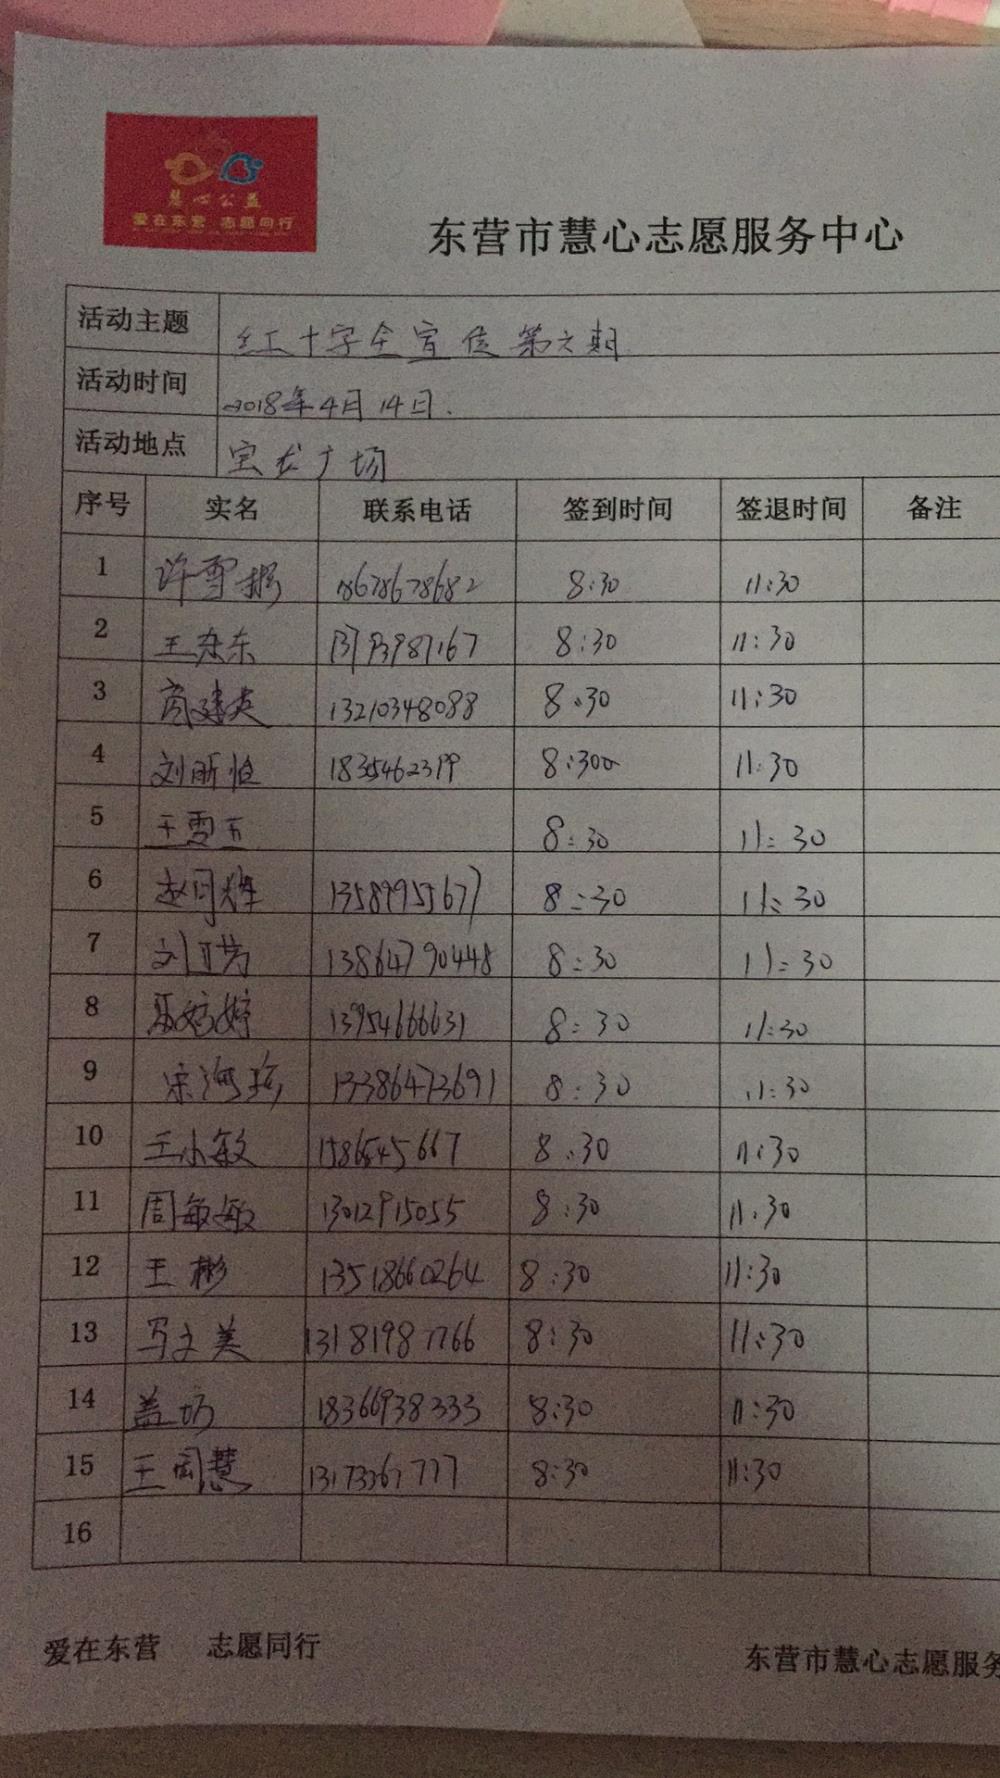 慧心公益
爱在东营 志愿同行
东营市慧心志愿服务中心
活动主题 红十字会宣传第六期
活动时间 2018年4月14日.
活动地点 宝龙广场
序号 实名 联系电话 签到时间 签退时间 备注
1 许雪 18678678682 8:30 11:30
2 王 东 13793987167 8:30 11:30
3 商建英 13210348088 8:30 11:30
4 刘 8:30 11:30
5 王雪玉 8:30 11:30
6 赵 13589955677 8:30 11:30
7 刘 芳 13864790448 8:30 11:30
8 婷婷 13954666631 8:30 11:30
9 宋海 13386473691 8:30 11:30
10 王小敏 8:30 11:30
11 周敏敏 13012915055 8:30 11:30
12 王彬 13518660264 8:30 11:30
13 文美 13181987766 8:30 11:30
14 盖 18366938333 8:30 11:30
15 王 慧 13173367777 8:30 11:30
16
爱在东营 志愿同行 东营市慧心志愿服务